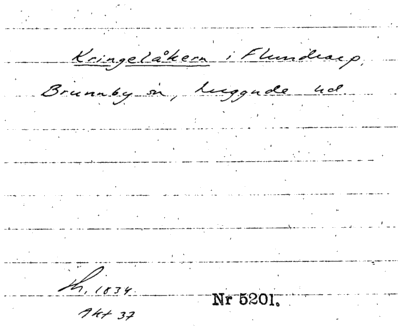 Kringelåkern i Flundrarp,
Brunnby sn, Luggude hd
1834.
Akt 37
Nr 5201.